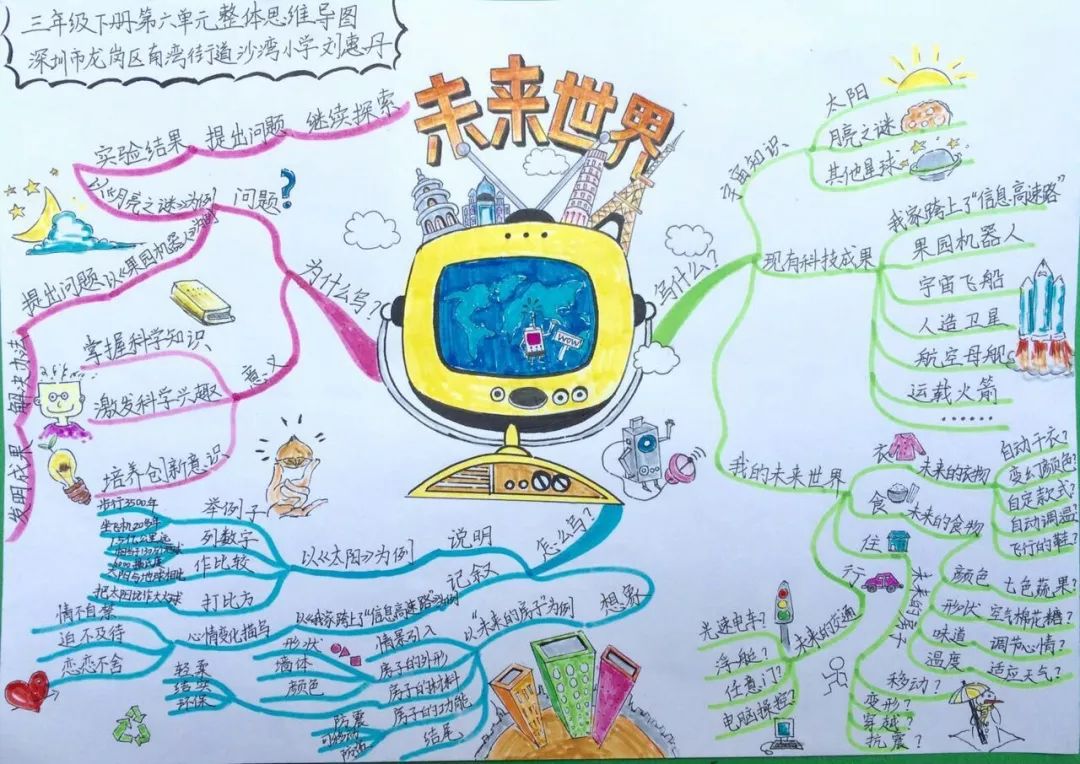 三年级下册第六单元整体思维导图
深圳市龙岗区南湾街道沙湾小学刘惠丹
未来世界
为什么写?
问题?
以《月亮之谜》为例
实验结果 提出问题 继续探索
以《果园机器人》为例
提出问题
解决办法
发明成果
意义
掌握科学知识
激发科学兴趣
培养创新意识
写什么?
宇宙知识
太阳
月亮之谜
其他星球
现有科技成果
我家跨上了“信息高速路”
果园机器人
宇宙飞船
人造卫星
航空母舰
运载火箭
……
我的未来世界
衣
未来的衣物
自动干衣?
变幻颜色?
自定款式?
自动调温?
飞行的鞋?
食
未来的食物
颜色 七色蔬果?
形状 空气棉花糖?
味道 调节心情?
温度 适应天气?
住
未来的房子
移动?
变形?
穿越?
抗震?
行
未来的交通
光速电车?
浮艇?
任意门?
电脑操控?
WOW
怎么写?
说明
以《太阳》为例
举例子
列数字
作比较
打比方
步行3500年
坐飞机20多年
太阳与地球相比
把太阳比作大火球
记叙
以《我家跨上了“信息高速路”》为例
心情变化描写
情不自禁
迫不及待
恋恋不舍
想象
以“未来的房子”为例
情景引入
房子的外形
形状
墙体
颜色
房子的材料
轻柔
结实
环保
房子的功能
防震
结尾